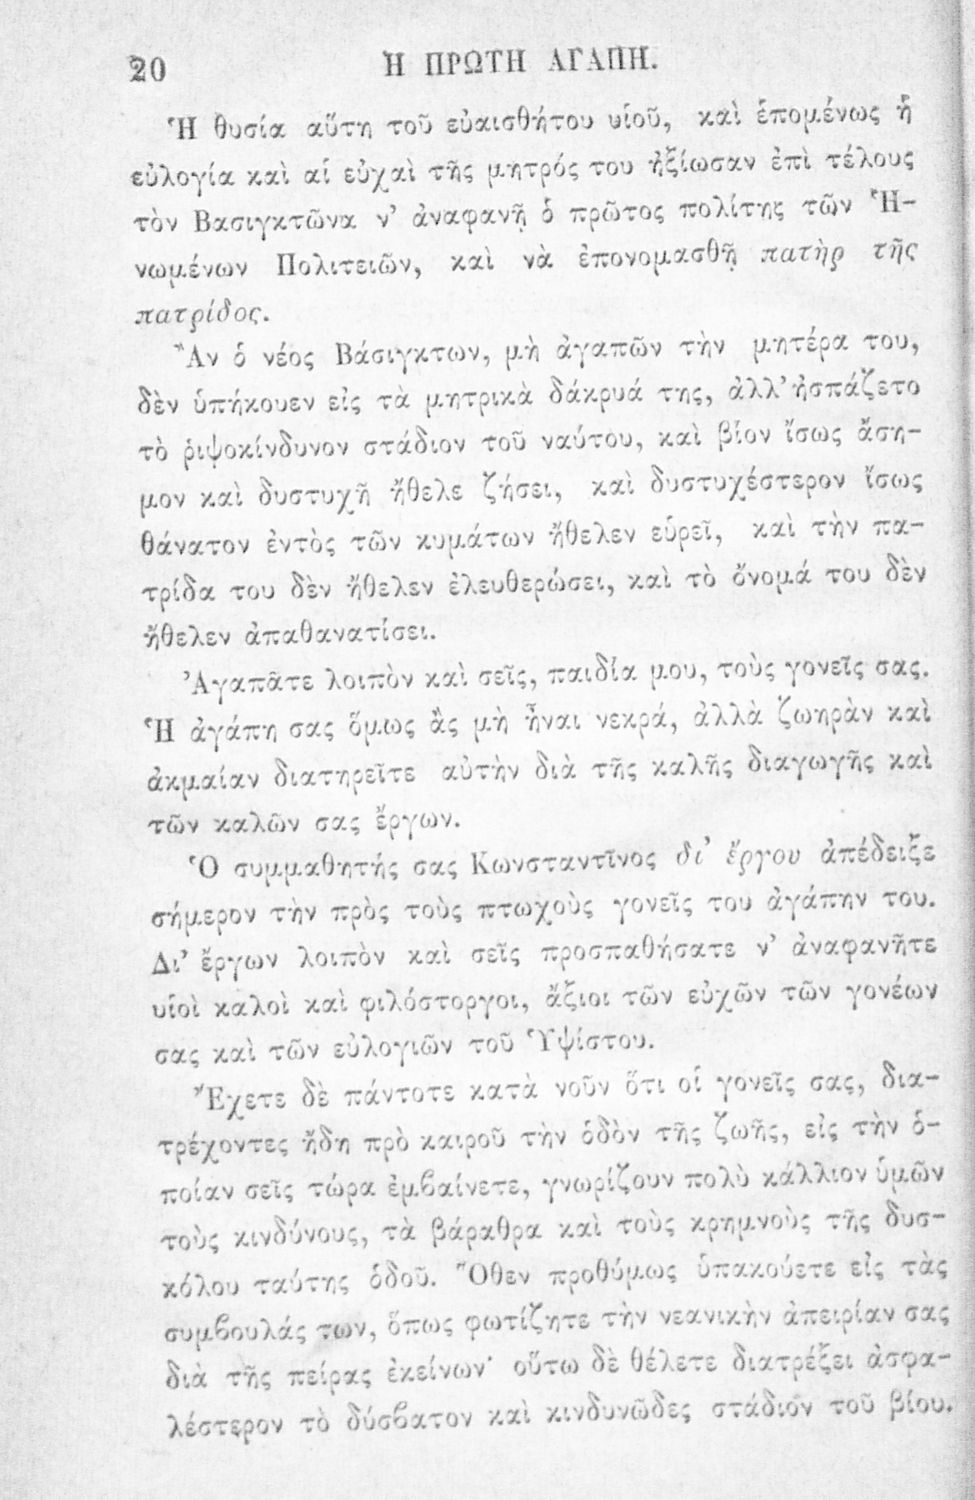 20 Ἡ ΠΡΩΤΗ ΑΓΑΠΗ.
Ἡ θυσία αὕτη τοῦ εὐαισθήτου υἱοῦ, καὶ ἑπομένως ἡ
εὐλογία καὶ αἱ εὐχαὶ τῆς μητρός του ἠξίωσαν ἐπὶ τέλους
τὸν Βασιγκτῶνα ν’ ἀναφανῇ ὁ πρῶτος πολίτης τῶν Ἡ-
νωμένων Πολιτειῶν, καὶ νὰ ἐπονομασθῇ πατὴρ τῆς
πατρίδος.
Ἂν ὁ νέος Βάσιγκτων, μὴ ἀγαπῶν τὴν μητέρα του,
δὲν ὑπήκουεν εἰς τὰ μητρικὰ δάκρυά της, ἀλλ’ ἠσπάζετο
τὸ ῥιψοκίνδυνον στάδιον τοῦ ναύτου, καὶ βίον ἴσως ἄση-
μον καὶ δυστυχῆ ἤθελε ζήσει, καὶ δυστυχέστερον ἴσως
θάνατον ἐντὸς τῶν κυμάτων ἤθελεν εὑρεῖ, καὶ τὴν πα-
τρίδα του δὲν ἤθελεν ἐλευθερώσει, καὶ τὸ ὄνομά του δὲν
ἤθελεν ἀπαθανατίσει.
Ἀγαπᾶτε λοιπὸν καὶ σεῖς, παιδία μου, τοὺς γονεῖς σας.
Ἡ ἀγάπη σας ὅμως ἂς μὴ ἦναι νεκρά, ἀλλὰ ζωηρὰν καὶ
ἀκμαίαν διατηρεῖτε αὐτὴν διὰ τῆς καλῆς διαγωγῆς καὶ
τῶν καλῶν σας ἔργων.
Ὁ συμμαθητής σας Κωνσταντῖνος δι’ ἔργου ἀπέδειξε
σήμερον τὴν πρὸς τοὺς πτωχοὺς γονεῖς του ἀγάπην του.
Δι’ ἔργων λοιπὸν καὶ σεῖς προσπαθήσατε ν’ ἀναφανῆτε
υἱοὶ καλοὶ καὶ φιλόστοργοι, ἄξιοι τῶν εὐχῶν τῶν γονέων
σας καὶ τῶν εὐλογιῶν τοῦ Ὑψίστου.
Ἔχετε δὲ πάντοτε κατὰ νοῦν ὅτι οἱ γονεῖς σας, δια-
τρέχοντες ἤδη πρὸ καιροῦ τὴν ὁδὸν τῆς ζωῆς, εἰς τὴν ὁ-
ποίαν σεῖς τώρα ἐμβαίνετε, γνωρίζουν πολὺ κάλλιον ὑμῶν
τοὺς κινδύνους, τὰ βάραθρα καὶ τοὺς κρημνοὺς τῆς δυσ-
κόλου ταύτης ὁδοῦ. Ὅθεν προθύμως ὑπακούετε εἰς τὰς
συμβουλάς των, ὅπως φωτίζητε τὴν νεανικὴν ἀπειρίαν σας
διὰ τῆς πείρας ἐκείνων· οὕτω δὲ θέλετε διατρέξει ἀσφα-
λέστερον τὸ δύσβατον καὶ κινδυνῶδες στάδιον τοῦ βίου.